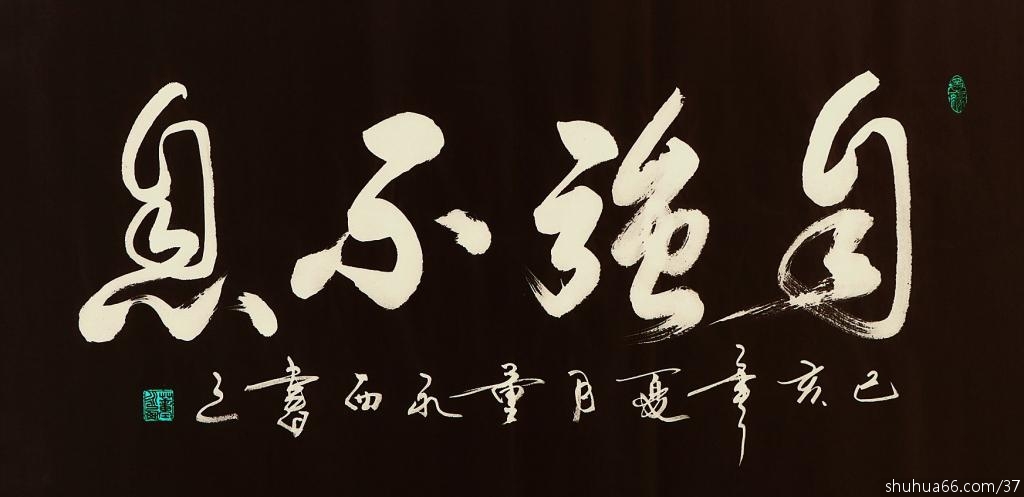 自強不息
己亥年夏月董永西書之
shuhua66.com/37